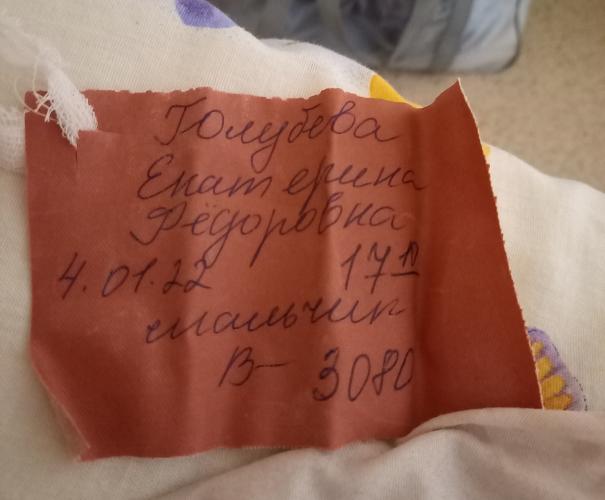 Голубева
Екатерина
Фёдоровна
4.01.22 17 10
мальчик
В- 3080